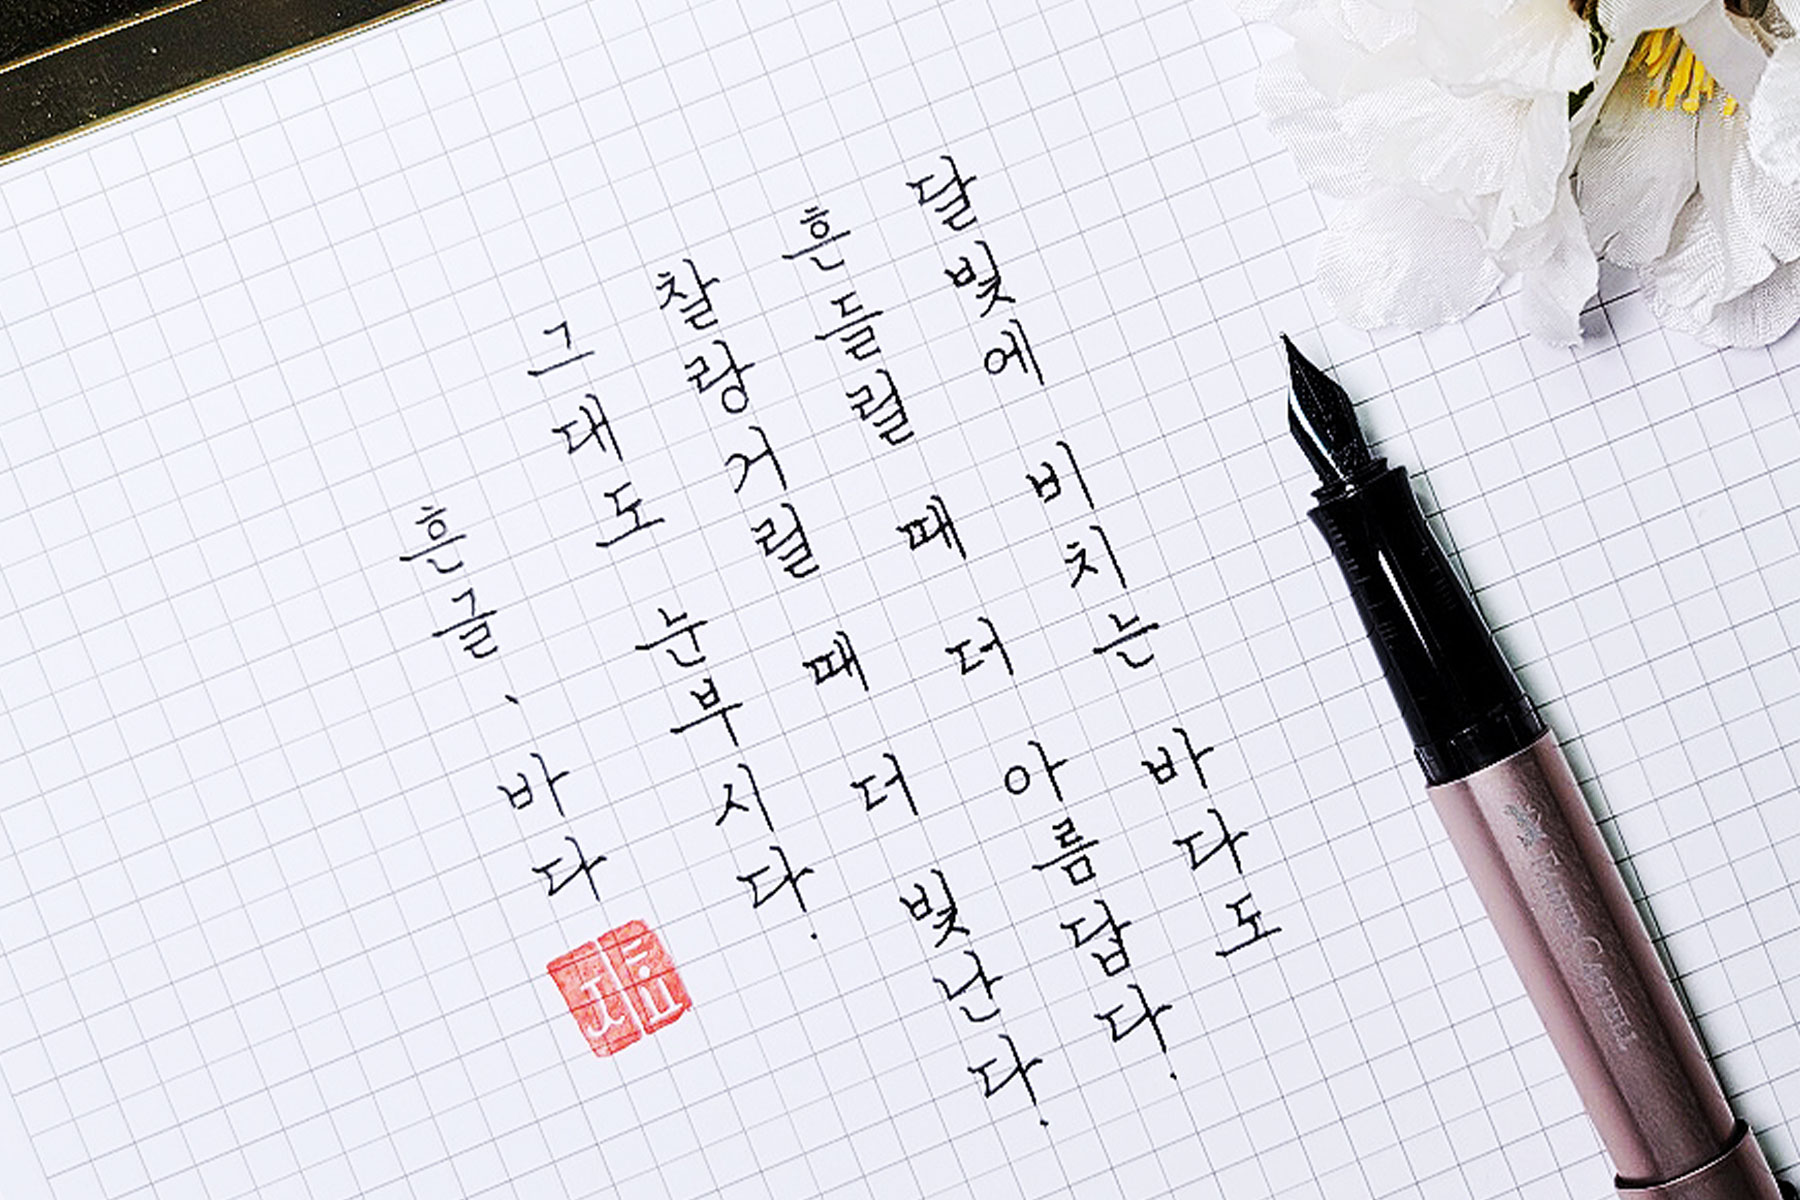 달빛에 비치는 바다도
흔들릴 때 더 아름답다.
찰랑거릴 때 더 빛난다.
그대도 눈부시다.
흔글、바다